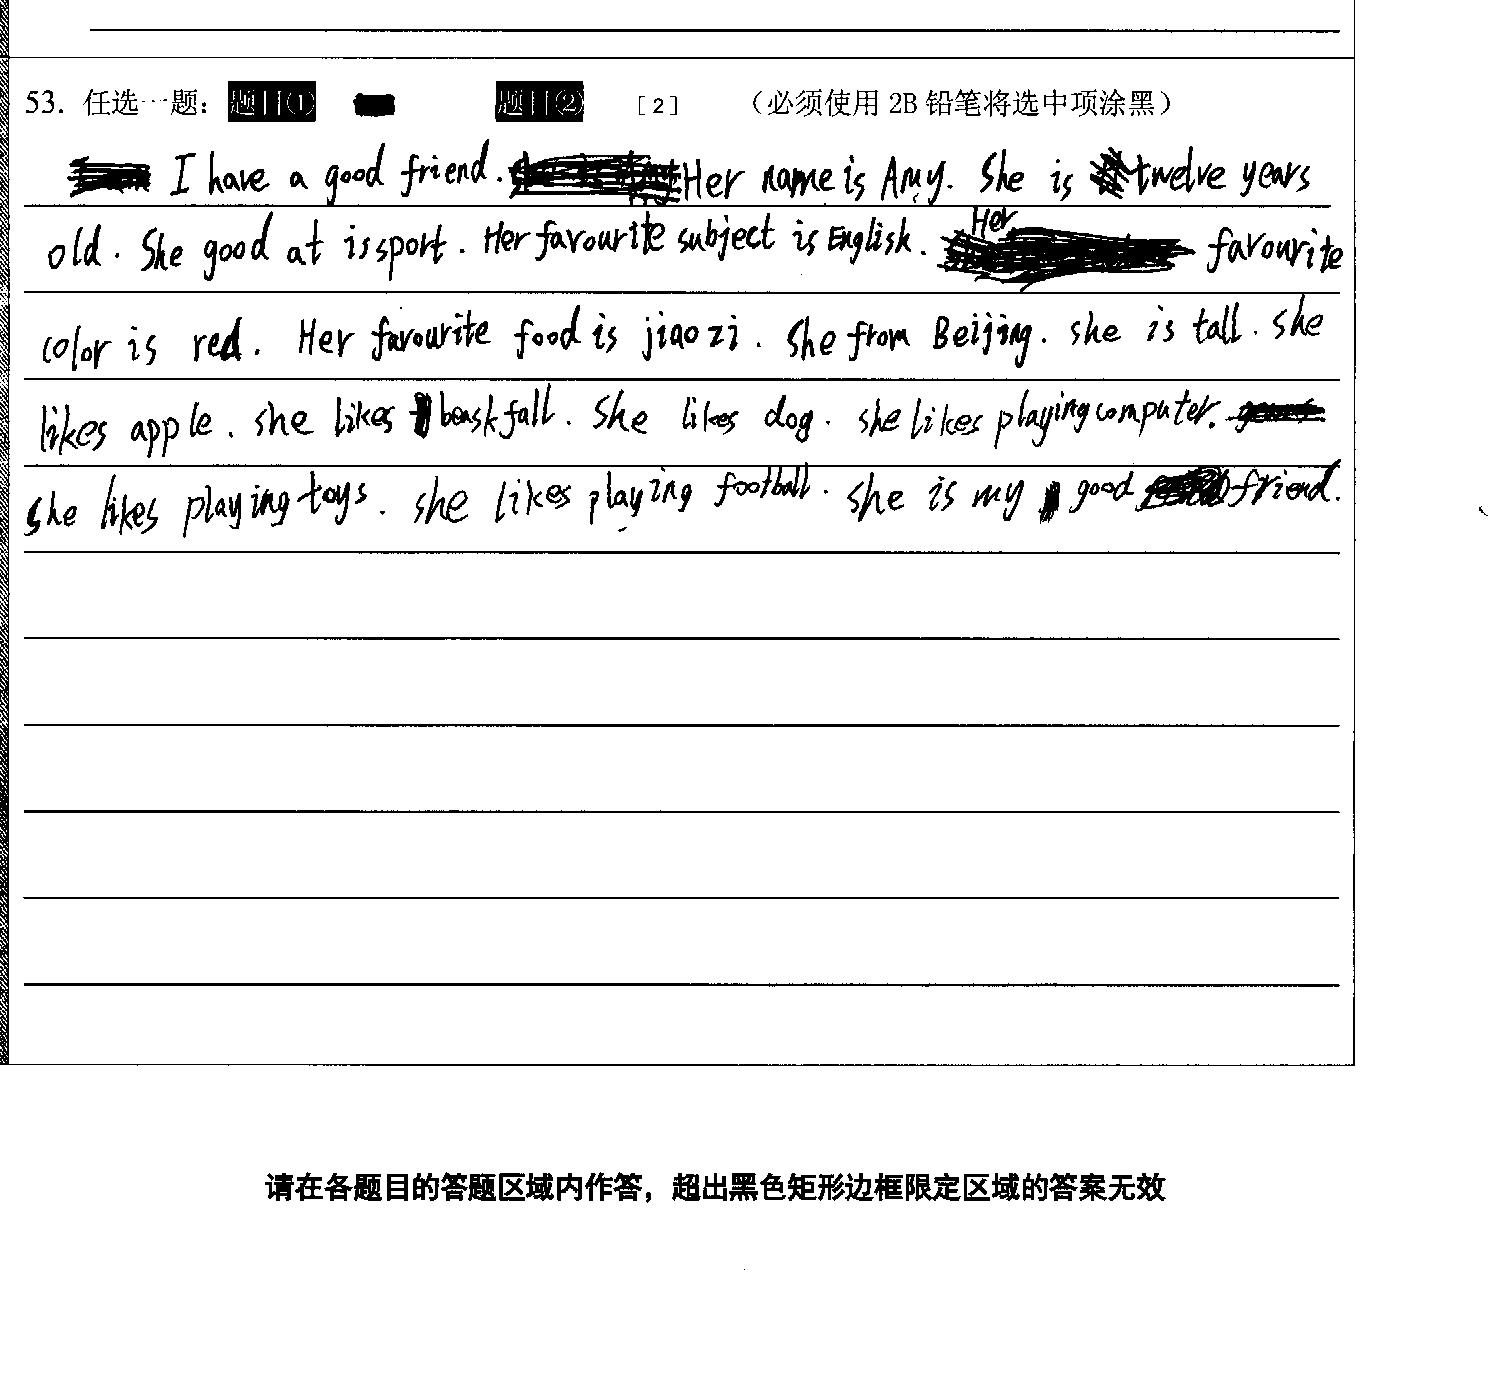 53. 任选一题： 题目① 题目② [2] （必须使用 2B 铅笔将选中项涂黑）
I have a good friend. Her name is Amy. She is twelve years
old. She good at is sport. Her favourite subject is English. Her favourite
color is red. Her favourite food is jiao zi. She from Beijing. she is tall. she
likes apple. she likes beaskfall. She likes dog. she likes playing computer.
she likes playing toys. she likes playing football. she is my good friend.
请在各题目的答题区域内作答，超出黑色矩形边框限定区域的答案无效